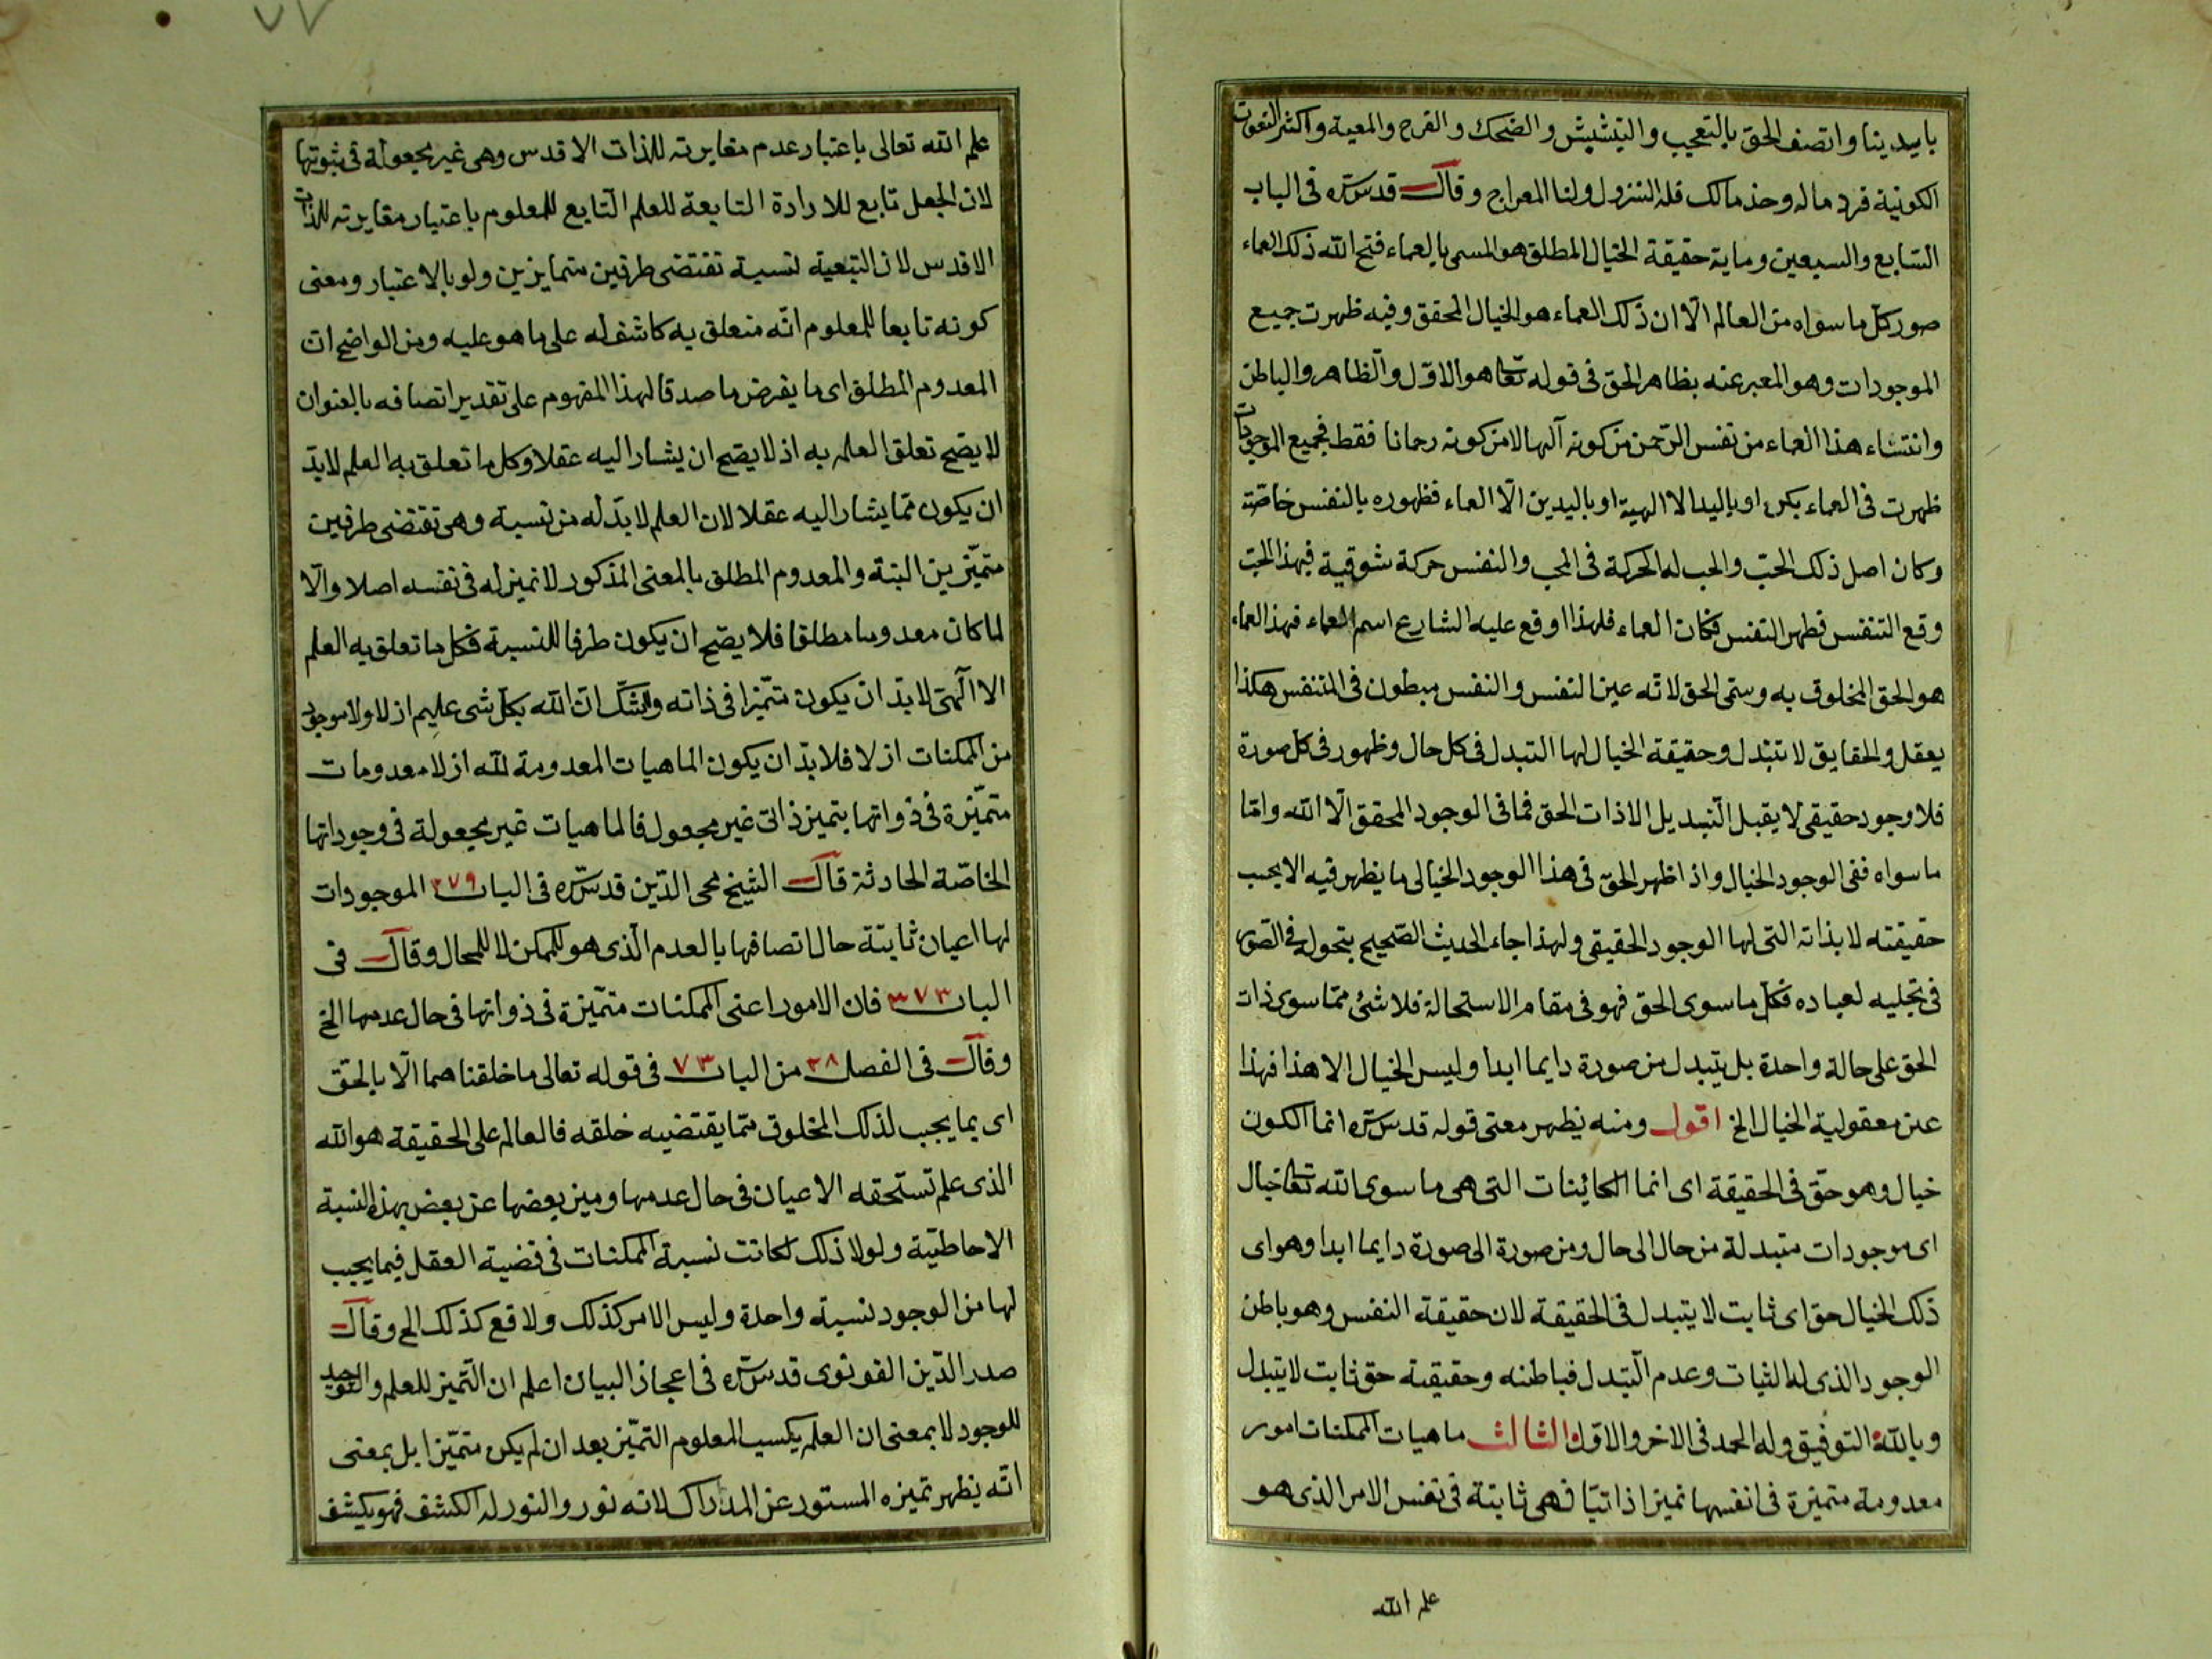 بايدينا واتصف الحق بالتعجب والتبشبش والضحك والفرح والمعية واكثر النعوت
الكونية فرد ما له وخذ مالك فله النزول ولنا المعراج وقال قدس سره فى الباب
السابع والسبعين وماية حقيقة الخيال المطلق هو المسمى بالعماء فتح الله ذلك العماء
صور كل ما سواه من العالم الا ان ذلك العماء هو الخيال المحقق وفيه ظهرت جميع
الموجودات وهو المعبر عنه بظاهر الحق فى قوله تعا هو الاول والظاهر والباطن
وانتشاء هذا العماء من نفس الرحمن من كونه آلها لا من كونه رحمانا فقط فجميع الموجودات
ظهرت فى العماء بكن او باليد الا الهية او باليدين الا العماء فظهوره بالنفس خاصة
وكان اصل ذلك الحب والحب له الحركة فى المحب والنفس حركة شوقية فبهذا الحب
وقع التنفس فظهر النفس فكان العماء فلهذا اوقع عليه الشارع اسم العماء فهذا العماء
هو الحق المخلوق به وسمى الحق لانه عين النفس والنفس مبطون فى المتنفس هكذا
يعقل والحقايق لا تتبدل وحقيقة الخيال لها التبدل فى كل حال وظهور فى كل صورة
فلا وجود حقيقى لا يقبل التبديل الا ذات الحق فما فى الوجود المحقق الا الله واما
ما سواه ففى الوجود الخيال واذا ظهر الحق فى هذا الوجود الخيالى ما يظهر فيه الا بحسب
حقيقته لا بذاته التى لها الوجود الحقيقى ولهذا جاء الحديث الصحيح بتحوله فى الصور
فى تجليه لعباده فكل ما سوى الحق فهو فى مقام الاستحالة فلا شئ مما سوى ذات
الحق على حالة واحدة بل يتبدل من صورة دايما ابدا وليس الخيال الا هذا فهذا
عين معقولية الخيال الخ اقول ومنه يظهر معنى قوله قدس سره انما الكون
خيال وهو حق فى الحقيقة اى انما الكائنات التى هى ما سوى الله تعا خيال
اى موجودات متبدلة من حال الى حال ومن صورة الى صورة دايما ابدا وهو اى
ذلك الخيال حق اى ثابت لا يتبدل فى الحقيقة لان حقيقة النفس وهو باطن
الوجود الذى له الثبات وعدم التبدل فباطنه وحقيقته حق ثابت لا يتبدل
وبالله التوفيق وله الحمد فى الاخر والاول الثالث ماهيات الممكنات امور
معدومة متميزة فى انفسها تميزا ذاتيا فهى ثابتة فى نفس الامر الذى هو
علم الله
علم الله تعالى باعتبار عدم مغايرته للذات الاقدس وهى غير مجعولة فى ثبوتها
لان الجعل تابع للارادة التابعة للعلم التابع للمعلوم باعتبار مغايرته للذات
الاقدس لان التبعية نسبة تقتضى طرفين متمايزين ولو بالاعتبار ومعنى
كونه تابعا للمعلوم انه متعلق به كاشف له على ما هو عليه ومن الواضح ان
المعدوم المطلق اى ما يفرض ما صدقا لهذا المفهوم على تقدير اتصافه بالعنوان
لا يصح تعلق العلم به اذ لا يصح ان يشار اليه عقلا وكل ما تعلق به العلم لا بد
ان يكون مما يشار اليه عقلا لان العلم لا بد له من نسبة وهى تقتضى طرفين
متميزين البتة والمعدوم المطلق بالمعنى المذكور لا تميز له فى نفسه اصلا والا
لما كان معدوما مطلقا فلا يصح ان يكون طرفا للنسبة فكل ما تعلق به العلم
الا الهى لا بد ان يكون متميزا فى ذاته ولا شك ان الله بكل شى عليم ازلا ولا موجود
من الممكنات ازلا فلا بد ان يكون الماهيات المعدومة لله ازلا معدومات
متميزة فى ذواتها بتميز ذاتى غير مجعول فالماهيات غير مجعولة فى وجوداتها
الخاصة الحادثة قال الشيخ محى الدين قدس سره فى الباب ٣٧٩ الموجودات
لها اعيان ثابتة حال اتصافها بالعدم الذى هو للممكن لا للمحال وقال فى
الباب ٣٧٣ فان الامور اعنى الممكنات متميزة فى ذواتها فى حال عدمها الخ
وقال فى الفصل ٣٨ من الباب ٧٣ فى قوله تعالى ما خلقناهما الا بالحق
اى بما يجب لذلك المخلوق مما يقتضيه خلقه فالعالم على الحقيقة هو الله
الذى علم تستحقه الاعيان فى حال عدمها وميز بعضها عن بعض بهذه النسبة
الاحاطية ولولا ذلك لكانت نسبة الممكنات فى قضية العقل فيما يجب
لها من الوجود نسبة واحدة وليس الامر كذلك ولا وقع كذلك الخ وقال
صدر الدين القونوى قدس سره فى اعجاز البيان اعلم ان التميز للعلم والتوحيد
للوجود لا بمعنى ان العلم يكسب المعلوم التميز بعد ان لم يكن متميزا بل بمعنى
انه يظهر تميزه المستور عن المدارك لانه نور والنور له الكشف فهو يكشف